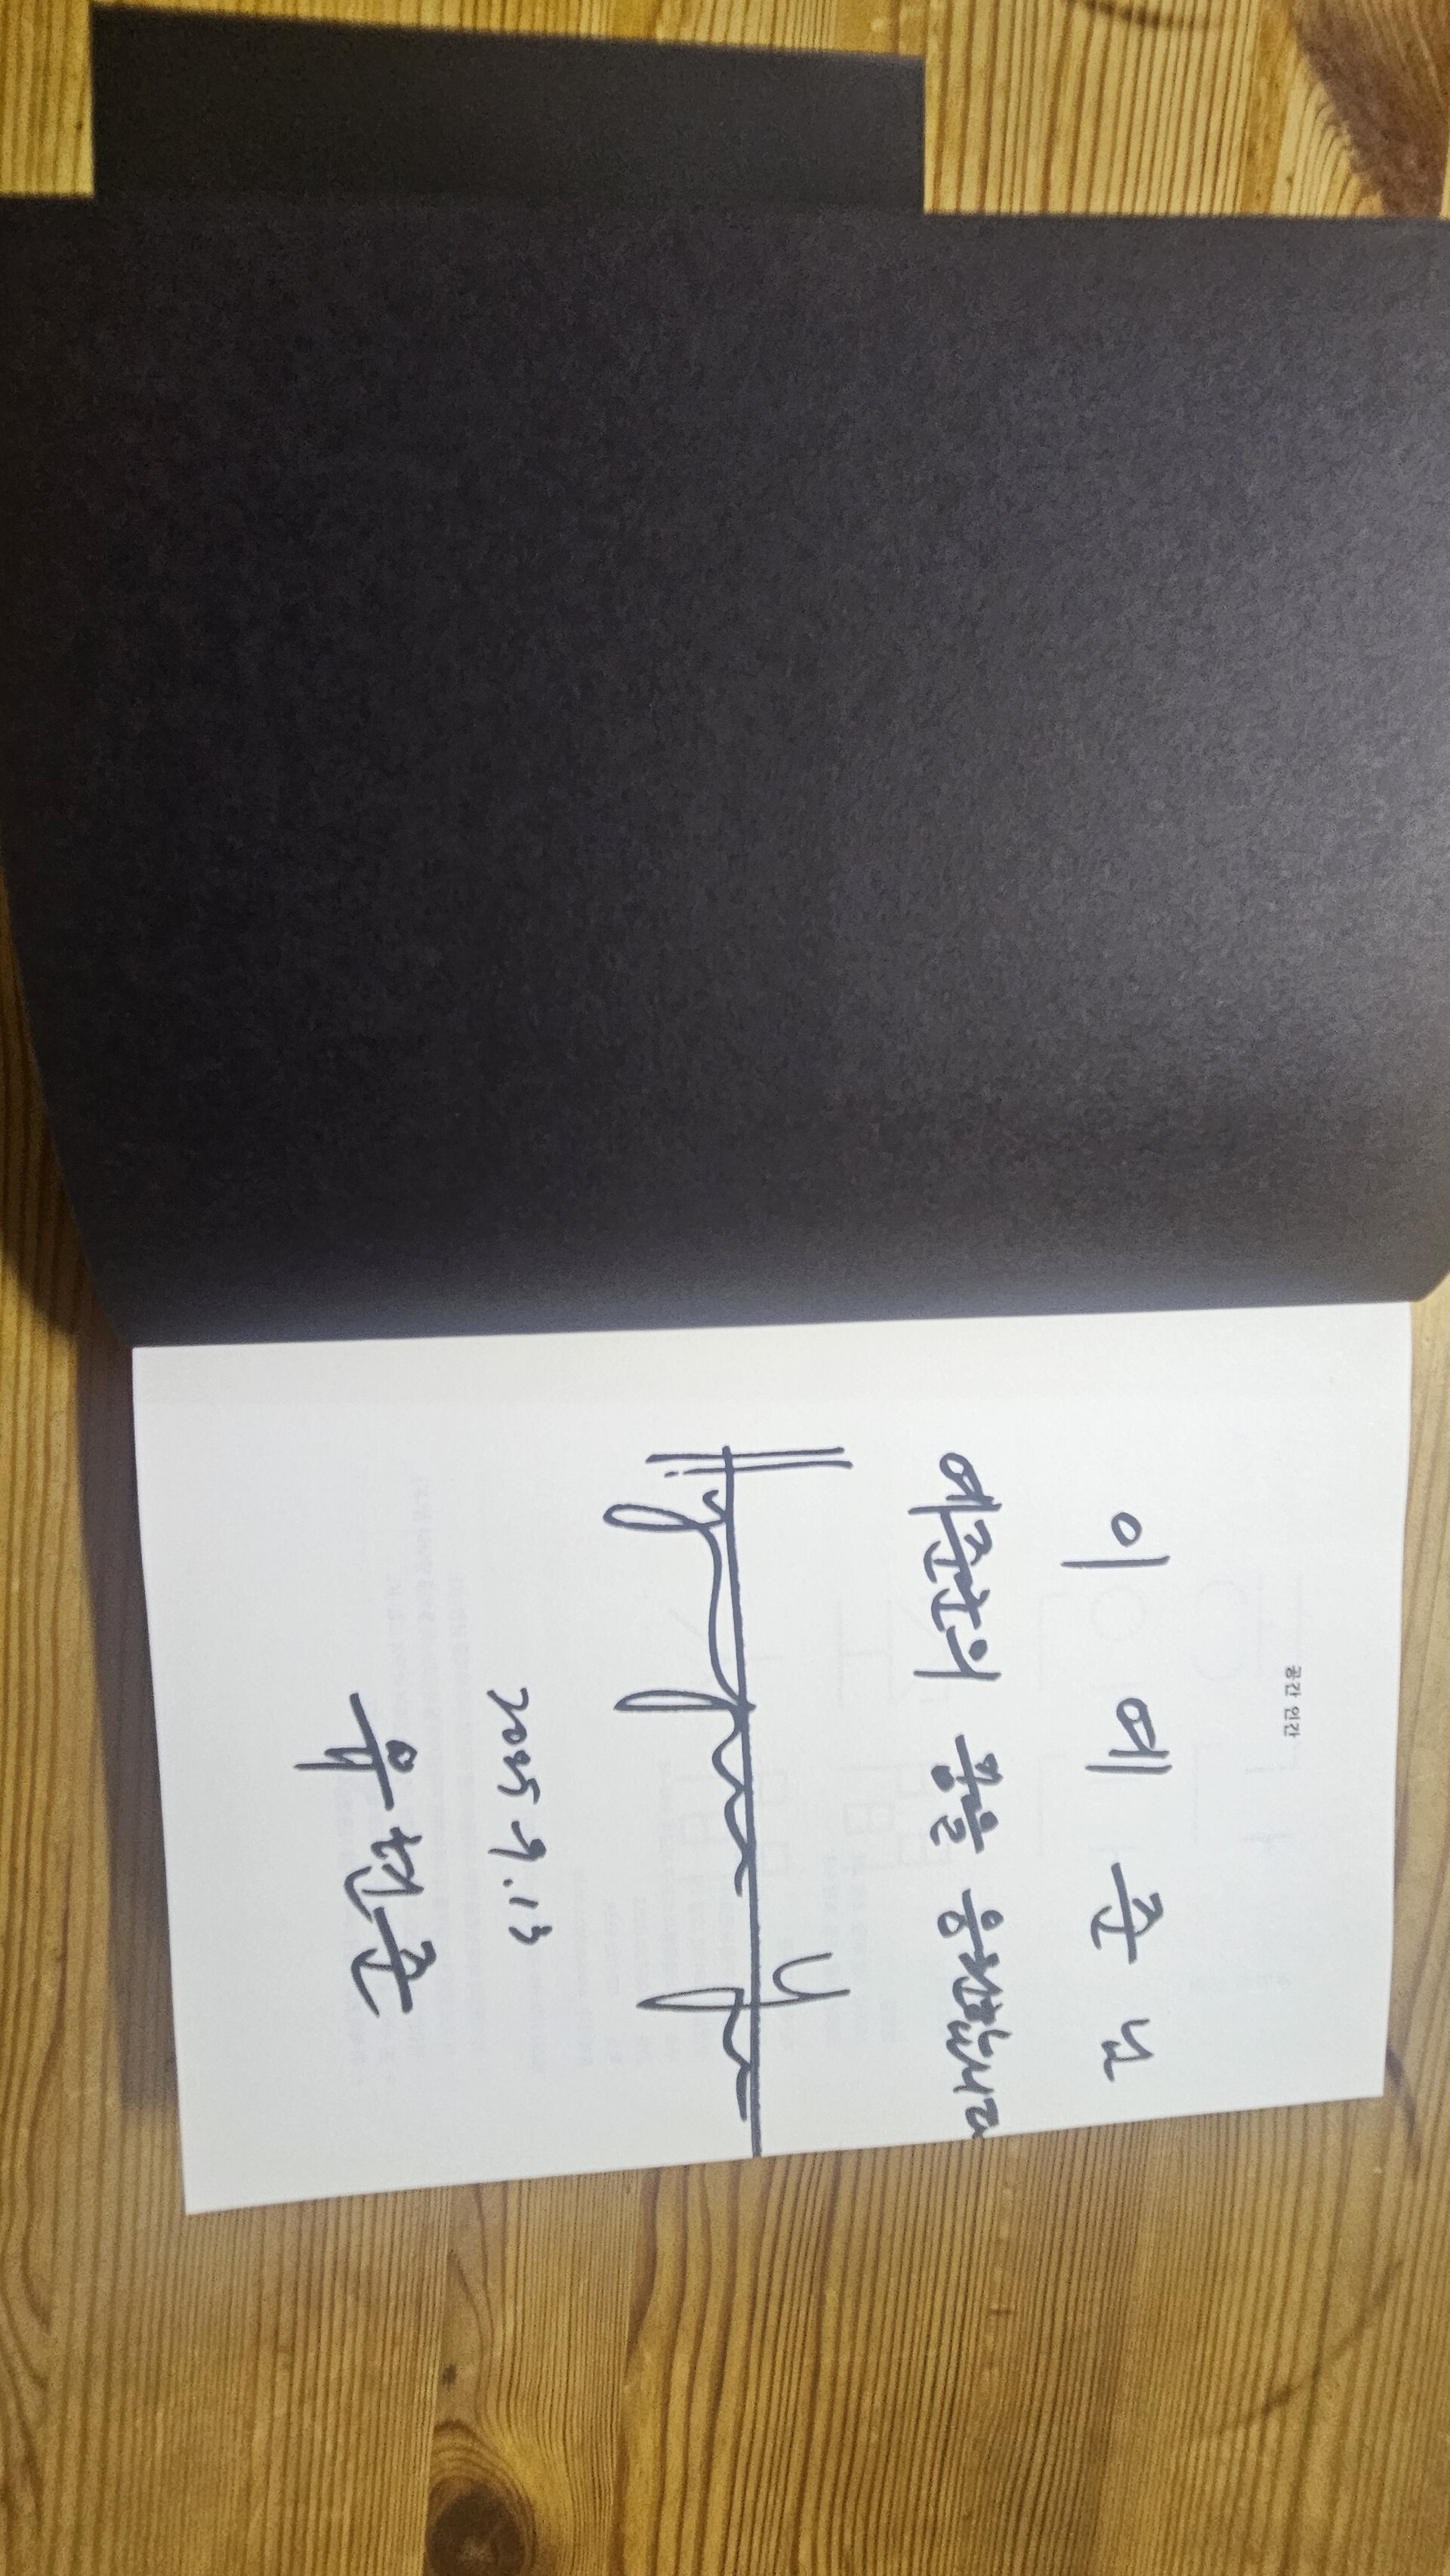 공간 인간
이 예 준 님
예준난의 꿈을 응원합니다
2025 9.13
유현준